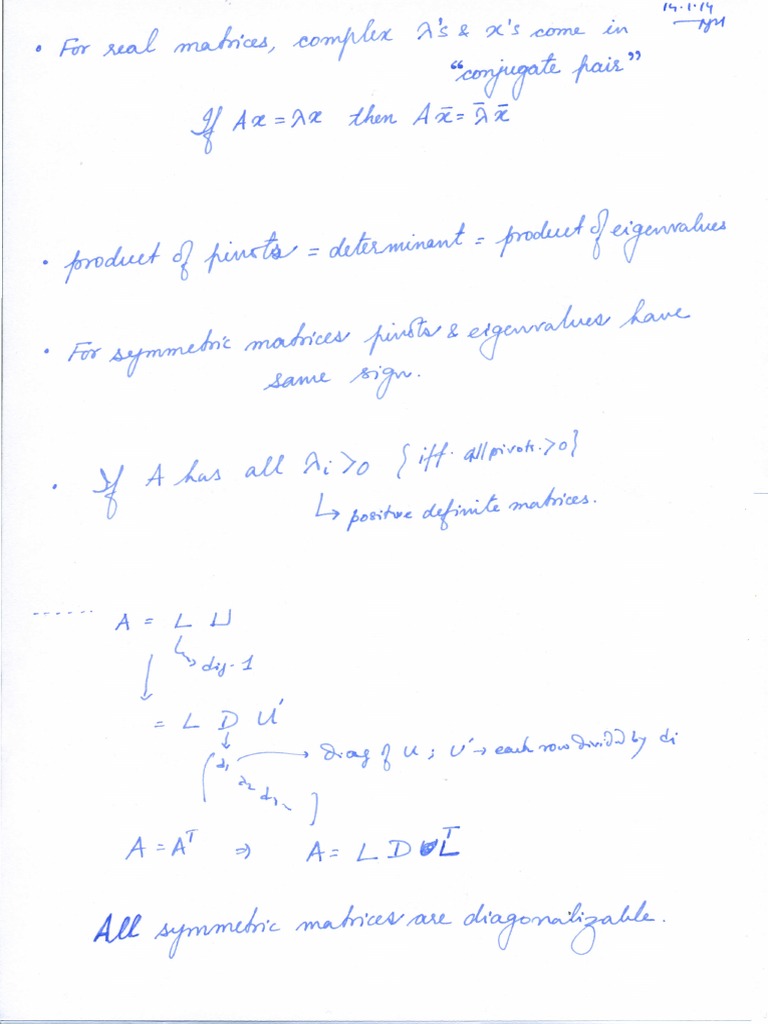 14.1.14
• For real matrices, complex λ's & x's come in
"conjugate pair"
If Ax = λx then Ax̄ = λ̄x̄
• product of pivots = determinant = product of eigenvalues
• For symmetric matrices pivots & eigenvalues have
same sign.
• If A has all λi>0 {iff. all pivots.>0}
↳ positive definite matrices.
....... A = L U
↳ dig. 1
= L D U'
d1 → Diag of U ; U' → each row divided by di
d2
A = Aᵀ ⇒ A = L D Lᵀ
All symmetric matrices are diagonalizable.